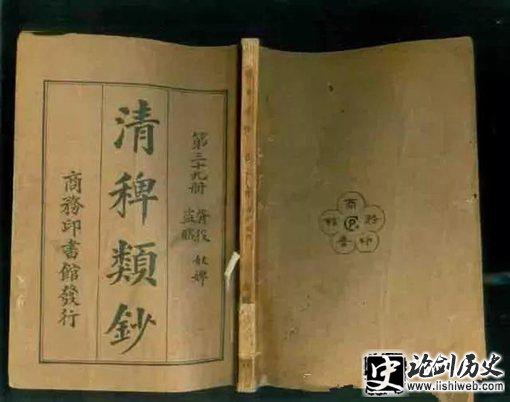 第三十九册 胥役 奴婢
盜賊
清稗類鈔
商務印書館發行
商務印書館
史
论剑历史
www.lishiweb.com